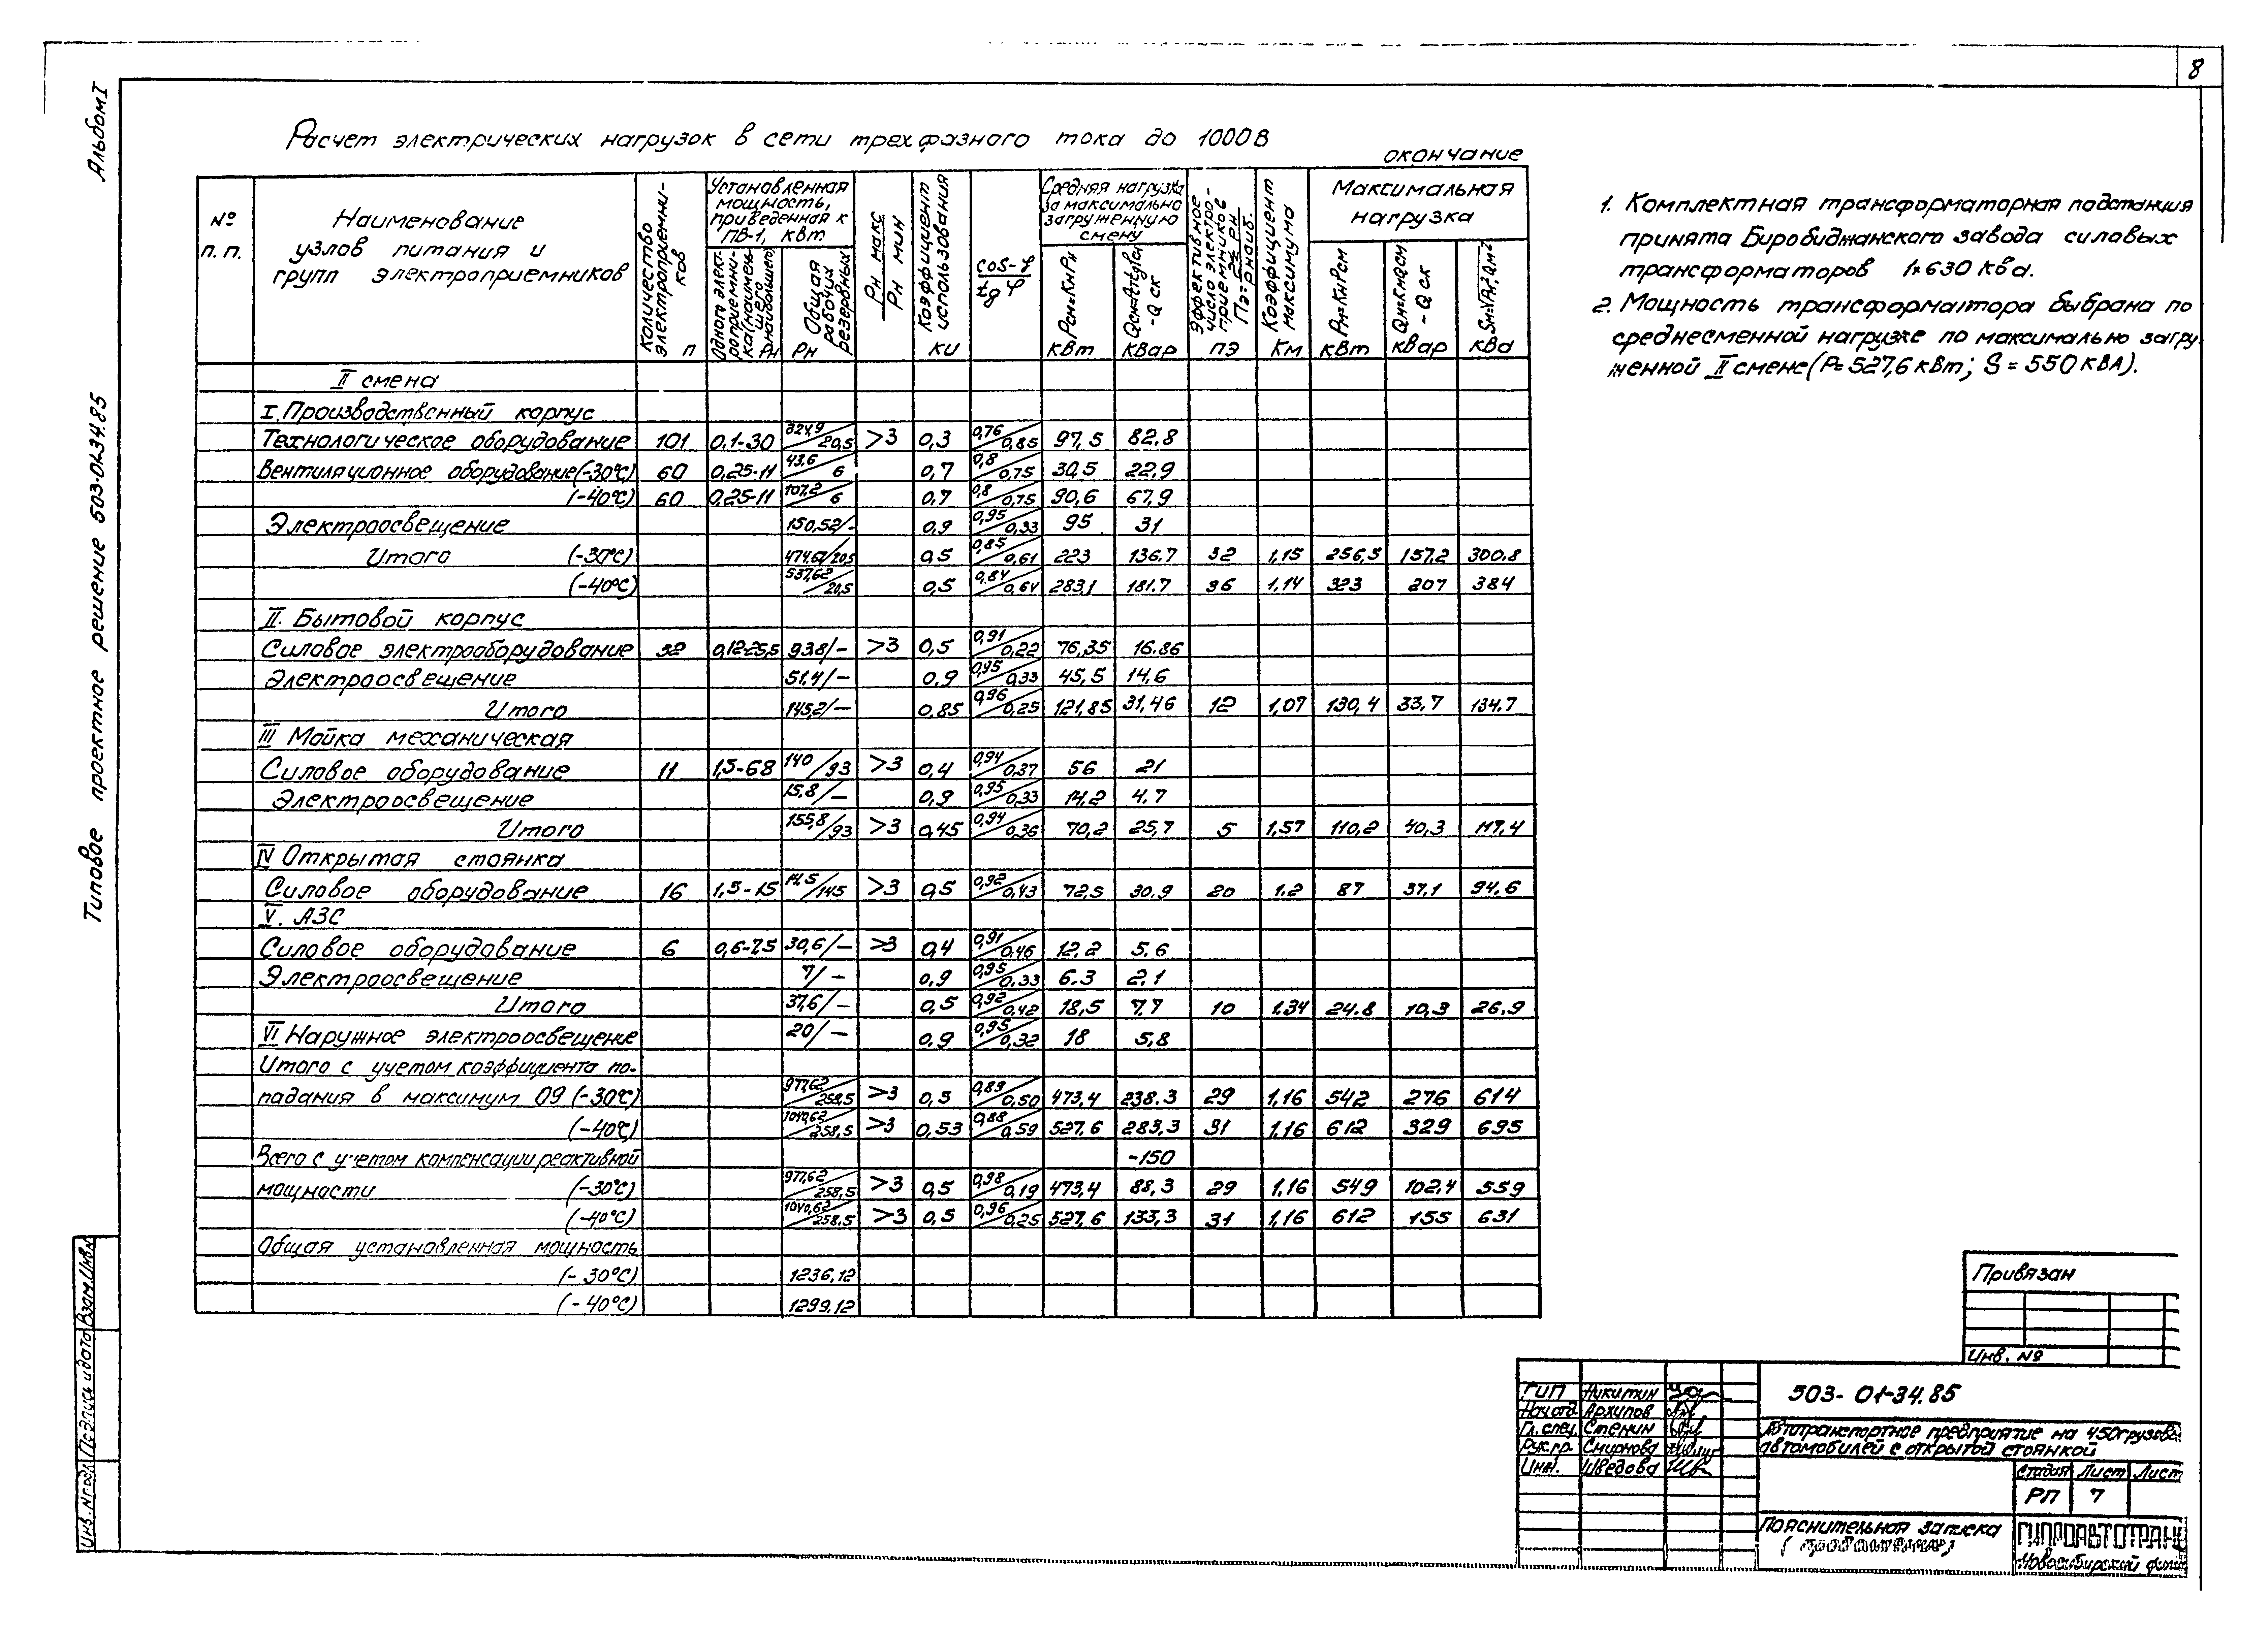 8
Альбом I
Типовое проектное решение 503-01-34.85
Расчет электрических нагрузок в сети трехфазного тока до 1000В
окончание
№ п.п.
Наименование узлов питания и групп электроприемников
Количество электроприемников n
Установленная мощность, приведенная к ПВ-1, квт
Одного электроприемника (наименьшего наибольшего) Рн
Общая рабочих резервных Рн
Рн макс / Рн мин
Коэффициент использования Ки
cos-φ / tg φ
Средняя нагрузка за максимально загруженную смену
Рсм=КиРн квт
- Qск квар
Эффективное число электроприемников nэ
Коэффициент максимума Км
Максимальная нагрузка
квт
Qм=КмQсм - Qск квар
ква
II смена
I. Производственный корпус
Технологическое оборудование 101 0,1-30 324,9/20,5 >3 0,3 0,76/0,85 97,5 82,8
Вентиляционное оборудование (-30°С) 60 0,25-11 43,6/6 0,7 0,8/0,75 30,5 22,9
(-40°С) 60 0,25-11 107,2/6 0,7 0,8/0,75 90,6 67,9
Электроосвещение 150,52/- 0,9 0,95/0,33 95 31
Итого (-30°С) 474,62/20,5 0,5 0,85/0,61 223 136.7 32 1,15 256,5 157,2 300.8
(-40°С) 537,62/20,5 0,5 0,84/0,64 283,1 181.7 36 1,14 323 207 384
II. Бытовой корпус
Силовое электрооборудование 32 0,12-25,5 93.8/- >3 0,5 0,91/0,22 76,35 16.86
Электроосвещение 51.4/- 0.9 0,95/0,33 45,5 14,6
Итого 145,2/- 0,85 0,96/0,25 121,85 31,46 12 1,07 130,4 33.7 134.7
III Мойка механическая
Силовое оборудование 11 1,5-68 140/93 >3 0,4 0,94/0,37 56 21
Электроосвещение 15,8/- 0,9 0,95/0,33 14,2 4.7
Итого 155,8/93 >3 0,45 0,94/0,36 70,2 25,7 5 1,57 110,2 40,3 117,4
IV Открытая стоянка
Силовое оборудование 16 1,5-15 14,5/145 >3 0,5 0,92/0,43 72,5 30.9 20 1.2 87 37,1 94.6
V. АЗС
Силовое оборудование 6 0,6-7,5 30,6/- >3 0,4 0,91/0,46 12,2 5,6
Электроосвещение 7/- 0,9 0,95/0,33 6.3 2,1
Итого 37,6/- 0,5 0,92/0,42 18,5 7,7 10 1.34 24.8 10,3 26.9
VI Наружное электроосвещение 20/- 0,9 0,95/0,32 18 5,8
Итого с учетом коэффициента по-
падания в максимум 09 (-30°С) 977,62/258,5 >3 0,5 0,89/0,50 473,4 238.3 29 1,16 542 276 614
(-40°С) 1040,62/258,5 >3 0,53 0,88/0,59 527,6 283,3 31 1,16 612 329 695
Всего с учетом компенсации реактивной -150
мощности (-30°С) 977,62/258,5 >3 0,5 0,98/0,19 473,4 88,3 29 1,16 549 102,4 559
(-40°С) 1040,62/258,5 >3 0,5 0,96/0,25 527,6 133,3 31 1,16 612 155 631
Общая установленная мощность
(-30°С) 1236,12
(-40°С) 1299,12
1. Комплектная трансформаторная подстанция
принята Биробиджанского завода силовых
трансформаторов 1×630 ква.
2. Мощность трансформатора выбрана по
среднесменной нагрузке по максимально загру
женной II смене (Р=527,6 кВт; S = 550 кВА).
Привязан
Инв. №
ГИП Никитин
Нач.отд. Архипов
Гл. спец. Стенин
Рук.гр. Смирнова
Инж. Шведова
503-01-34.85
Автотранспортное предприятие на 450 грузовы
автомобилей с открытой стоянкой
Стадия Лист Лист
РП 7
Пояснительная записка
(продолжение)
ГИПРОАВТОТРАНС
Новосибирский фили
Инв. № подл. Подпись и дата Взам. Инв. №